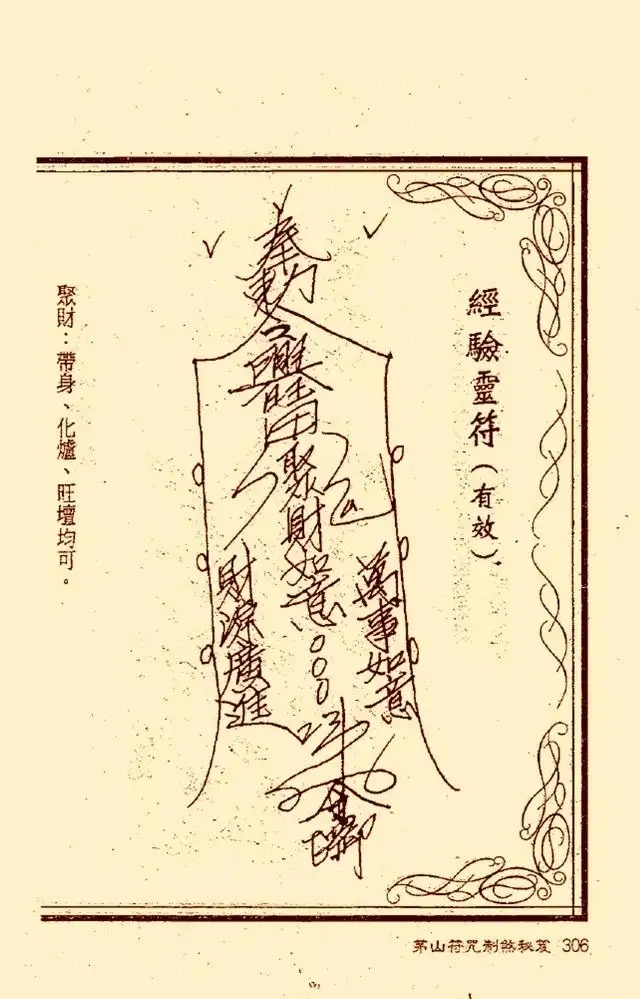 經驗靈符（有效）
奉勅
興旺
聚財如意
萬事如意
財源廣進
聚財：帶身、化爐、旺壇均可。
茅山符咒制煞秘笈 306